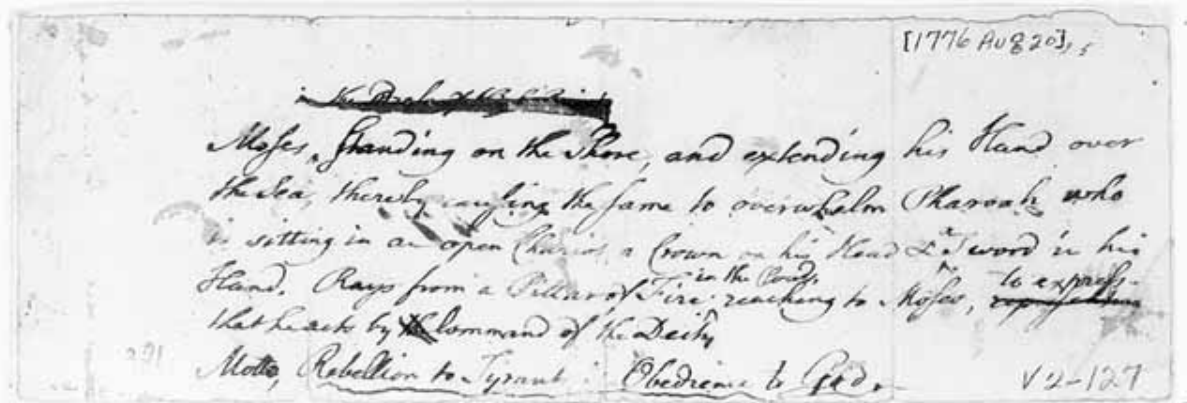 [1776 Aug 20],
Moses, standing on the Shore, and extending his Hand over
the Sea, thereby causing the same to overwhelm Pharoah who
is sitting in an open Chariot, a Crown on his Head & a Sword in his
Hand. Rays from a Pillar of Fire in the Clouds reaching to Moses, to express
that he acts by Command of the Deity
Motto, Rebellion to Tyrants is Obedience to God.
V 2-127